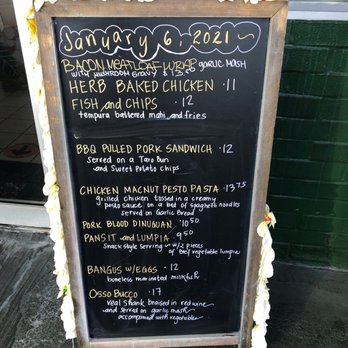 January 6, 2021~
BACON MEATLOAF WRAP GARLIC MASH
WITH MUSHROOM GRAVY $13.50
HERB BAKED CHICKEN · 11
FISH and CHIPS · 12
tempura battered mahi and fries
BBQ PULLED PORK SANDWICH · 12
served on a Taro Bun
and Sweet Potato chips
CHICKEN MACNUT PESTO PASTA · 13.75
grilled chicken tossed in a creamy
pesto sauce on a bed of spaghetti noodles
served on Garlic Bread
PORK BLOOD DINUGUAN 10.50
PANSIT and LUMPIA 9.50
snack style serving w/2 pieces
of Beef vegetable lumpia
BANGUS W/EGGS · 12
boneless marinated milkfish
OSSO BUCCO · 17
veal shank braised in red wine
and served on garlic mash
accompanied with vegetables